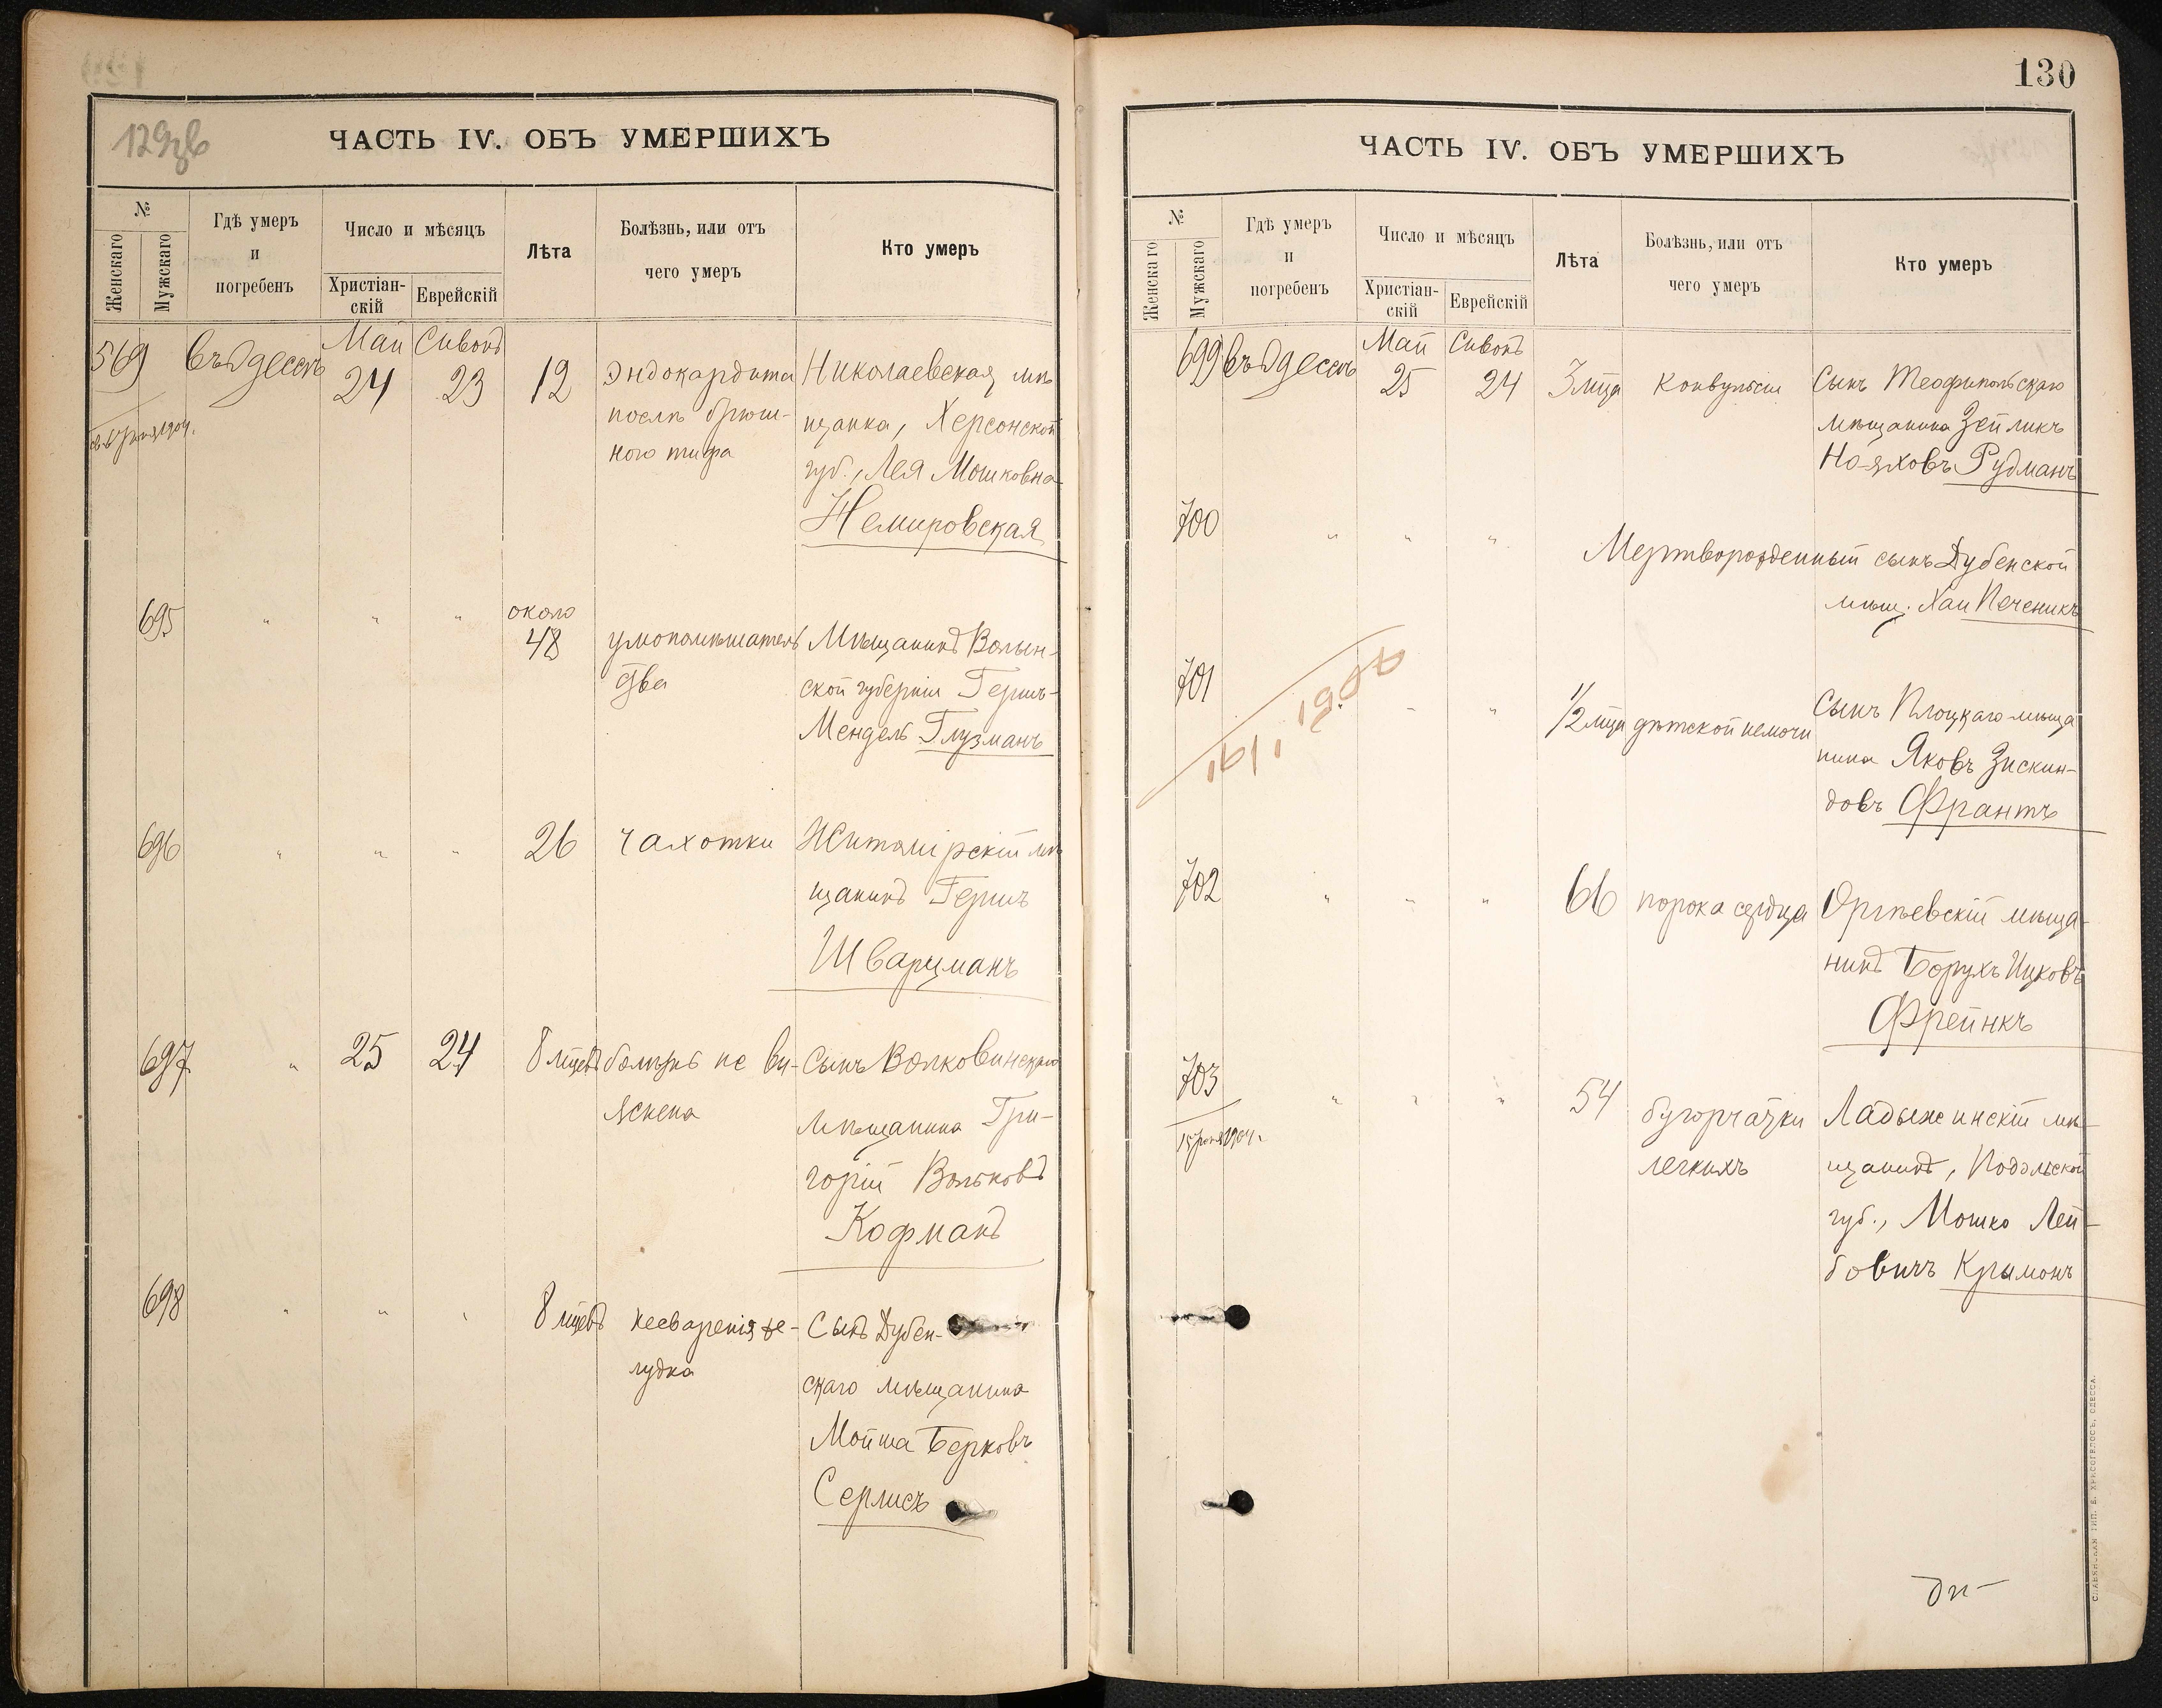 129 зв
ЧАСТЬ IV. ОБЪ УМЕРШИХЪ
№
Женскаго
Мужскаго
Гдѣ умеръ
и
погребенъ
Число и мѣсяцъ
Христіан-
скій
Еврейскій
Лѣта
Болѣзнь, или отъ
чего умеръ
Кто умеръ
569 въ Одессѣ Май 24 Сивонъ 23 12
Эндокардита
послѣ брюш-
ного тифа
Николаевская мѣ
щанка, Херсонской
губ., Лея Мошковна
Немировская
695 " " " около 48
умопомѣшатель
ства
Мѣщанинъ Волын-
ской губерніи Гершъ-
Мендель Глузманъ
696 " " " 26 чахотки
Житомірскій мѣ
щанинъ Гершъ
Шварцманъ
697 " 25 24 8 мцевъ
болѣзнь не вы-
яснена
Сынъ Волковинскаго
мѣщанина Гри-
горій Вольковъ
Кофманъ
698 " " " 8 мцевъ
несваренія же-
лудка
Сынъ Дубен-
скаго мѣщанина
Мойша Берковъ
Серлисъ
130
ЧАСТЬ IV. ОБЪ УМЕРШИХЪ
№
Женскаго
Мужскаго
Гдѣ умеръ
и
погребенъ
Число и мѣсяцъ
Христіан-
скій
Еврейскій
Лѣта
Болѣзнь, или отъ
чего умеръ
Кто умеръ
699 въ Одессѣ Май 25 Сивонъ 24 3 мца Конвульсіи
Сынъ Теофипольскаго
мѣщанина Зейликъ
Но-яховъ Рудманъ
700 " " "
Мертворожденный сынъ Дубенской
мѣщ. Хаи Печеникъ
701 " " 1/2 мца дѣтской немочи
16/1 1907
Сынъ Плоцкаго мѣща
нина Яковъ Зискин-
довъ Франтъ
702 " " " 66 порока сердца
Оргѣевскій мѣща-
нинъ Борухъ Ицковъ
Фрейнкъ
703 " " " 54
бугорчатки
легкихъ
Ладыжинскій мѣ-
щанинъ, Подольской
губ., Мошко Лей-
бовичъ Крымонъ
СЛАВЯНСКАЯ ТИП. Е. ХРИСОГЕЛОСЪ, ОДЕССА.